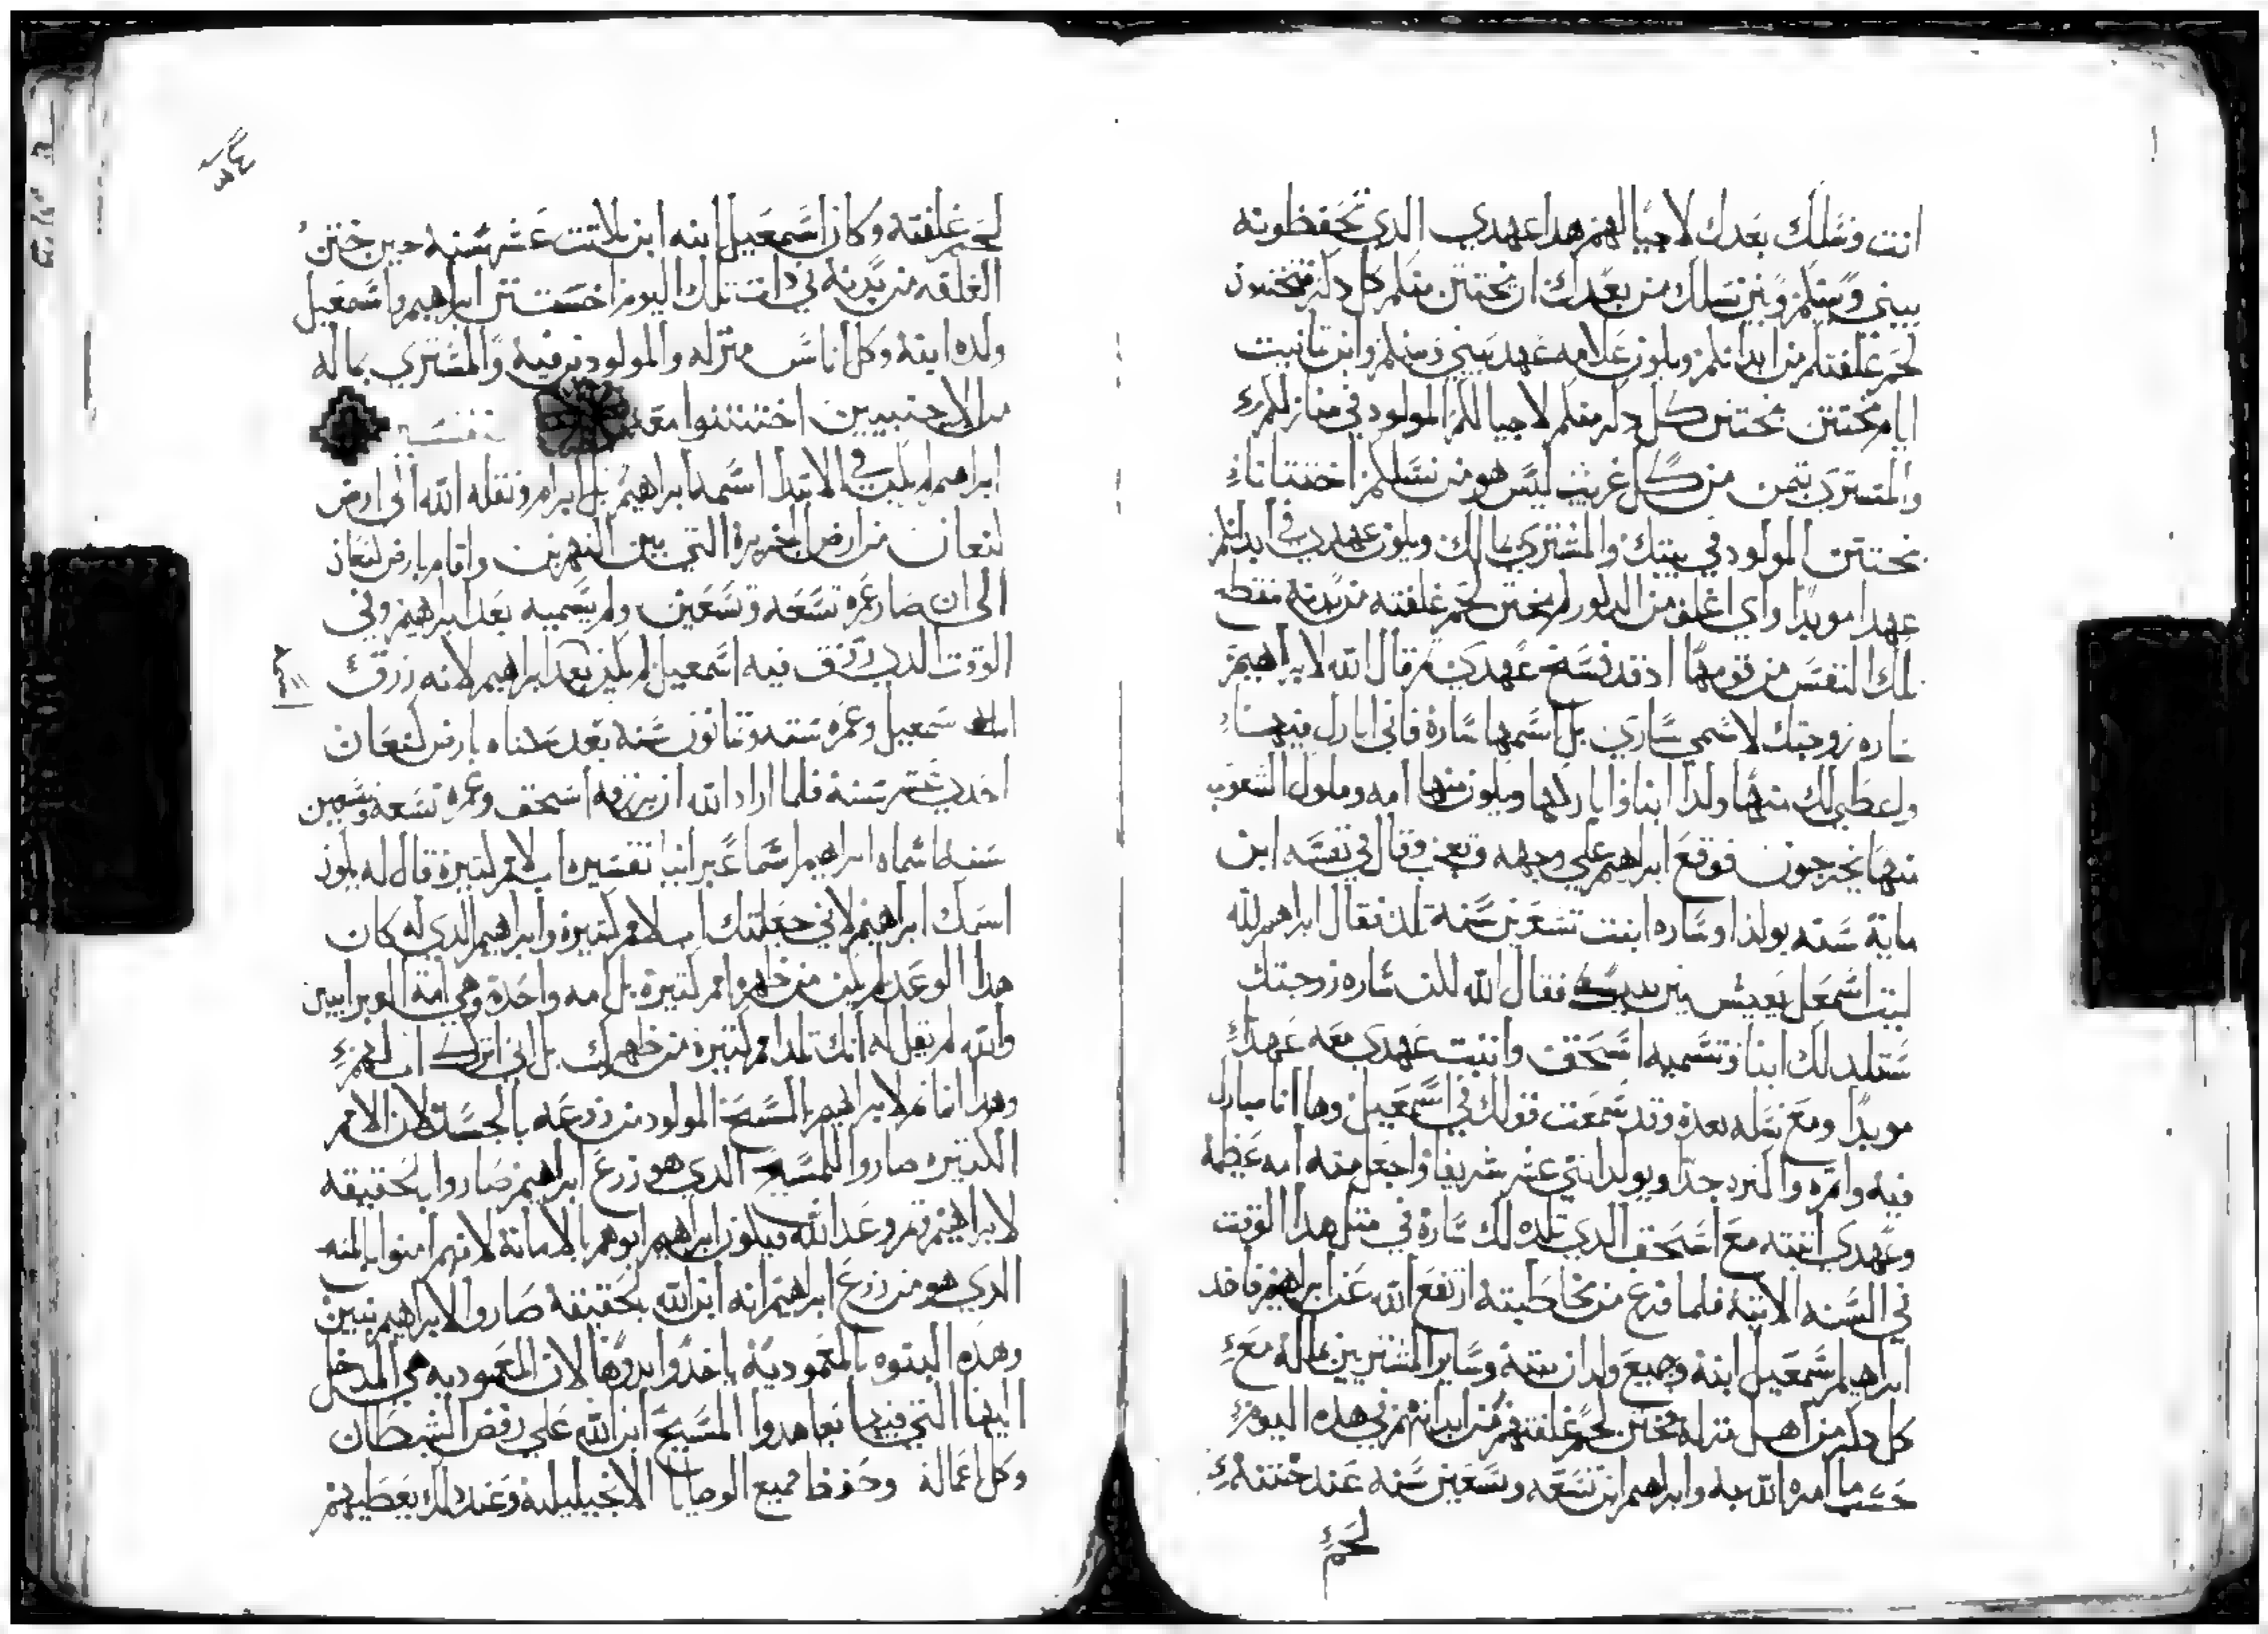 انت ونسلك بعدك لاجيالهم هدا عهدي الدي تحفظونه
بيني وبينكم وبين نسلك من بعدك ان يختتن منكم كل دكر فتختنون
لحم غلفتكم من ابدانكم ويكون علامه عهد بيني وبينكم وابن تمانيت
ايام يختتن يختتن كل دكر منكم لاجيالكم المولود في منازلكم
والمشتري بتمن من كل غريب ليس هو من نسلكم اختتانا
يختتن المولود في بيتك والمشتري بمالك ويكون عهدي في ابدانكم
عهدا موبدا واي اغلف من الدكور لم يختن لحم غلفته من بدنه فتقطع
تلك النفس من قومها اد قد فسخ عهدي تم قال الله لابراهيم
ساره زوجتك لا تسمي ساري بل اسمها سارة فاني ابارك فيها
واعطي لك منها ولدا ابنا وابارکها ويكون منها امه وملوك الشعوب
منها يخرجون فوقع ابراهيم علي وجهه وتعجب وقال في نفسه ابن
ماية سنه يولد او ساره ابنت تسعين سنة تلد فقال ابراهيم لله
ليت اسمعل يعيش بين يديك فقال الله لكن ساره زوجتك
ستلد لك ابنا وتسميه اسحق واتبت عهدي معه عهدا
موبدا ومع نسله بعده وقد سمعت قولك في اسمعيل وها انا مبارك
فيه واتمره واكتره جدا ويولد اتني عشر شريفا واجعل منه امه عظيمة
وعهدي اتبته مع اسحق الدي تلده لك سارة في متل هدا الوقت
في السنه الاتية فلما فرغ من مخاطبته ارتفع الله عن ابراهيم فاخد
ابراهيم اسمعيل ابنه وجميع ولدان بيته وساير المشتريين بماله مع
كل دكر من اهل منزله فختن لحم غلفتهم من ابدانهم في هده اليوم
حسب ما امره الله به وابراهيم ابن تسعه وتسعين سنه عند ختنه
لحم
لحم غلفته وكان اسمعيل ابنه ابن تلاتت عشر سنه حين ختن
الغلفه من بدنه في دات تلك اليوم اختتن ابراهيم واسمعيل
ولده ابنه وكل اناس منزله والمولودين فيه والمشتري بماله
من الاجنبيين اختتنوا معه تفسير
ابراهيم لم يكن في الابتدا اسمه ابراهيم بل ابرام ونقله الله الى ارض
كنعان من ارض الجزيرة التي بين النهرين واقام بارض كنعان
الى ان صار عمره تسعه وتسعين ولم يسميه بعد ابراهيم وفي
الوقت الدي رزق فيه اسمعيل لم يكن بعد ابراهيم لانه رزق
سمعيل وعمره سته وتمانون سنه بعد سكناه بارض كنعان
احدي عشر سنة فلما اراد الله ان يرزقه اسحق وعمره تسعه وتسعين
سنه سماه ابراهيم اسما عبرانيا تفسيره اب لامم كتيرة قال له يكون
اسمك ابراهيم لاني جعلتك اب لامم كتيرة وابراهيم الدي له كان
هدا الوعد لم يكن من ظهره امم كتيرة بل امه واحدة وهي امة العبرانيين
والله لم يقل له انك تلد امم كتيرة من ظهرك بل اني اتركك اب لهم
وهدا انما تم لابراهيم بالمسيح المولود من زرعه بالجسد لان الامم
الكتيره صاروا للمسيح الدي هو زرع ابراهيم صاروا بحقيقه
لابراهيم وتم وعد الله فيكون ابراهيم ابوهم بالامانة لانهم امنوا بالمسيح
الدي هو من زرع ابراهيم انه ابن الله بحقيقة صاروا لابراهيم بنين
وهده البنوه بالمعمودية ياخدوا بدوها لان المعموديه هي المدخل
اليها التي فيها تعاهدوا المسيح ابن الله علي رفض الشيطان
وكل اعماله وحفظ جميع الوصايا الانجيليلية وعند دلك يعطيهم